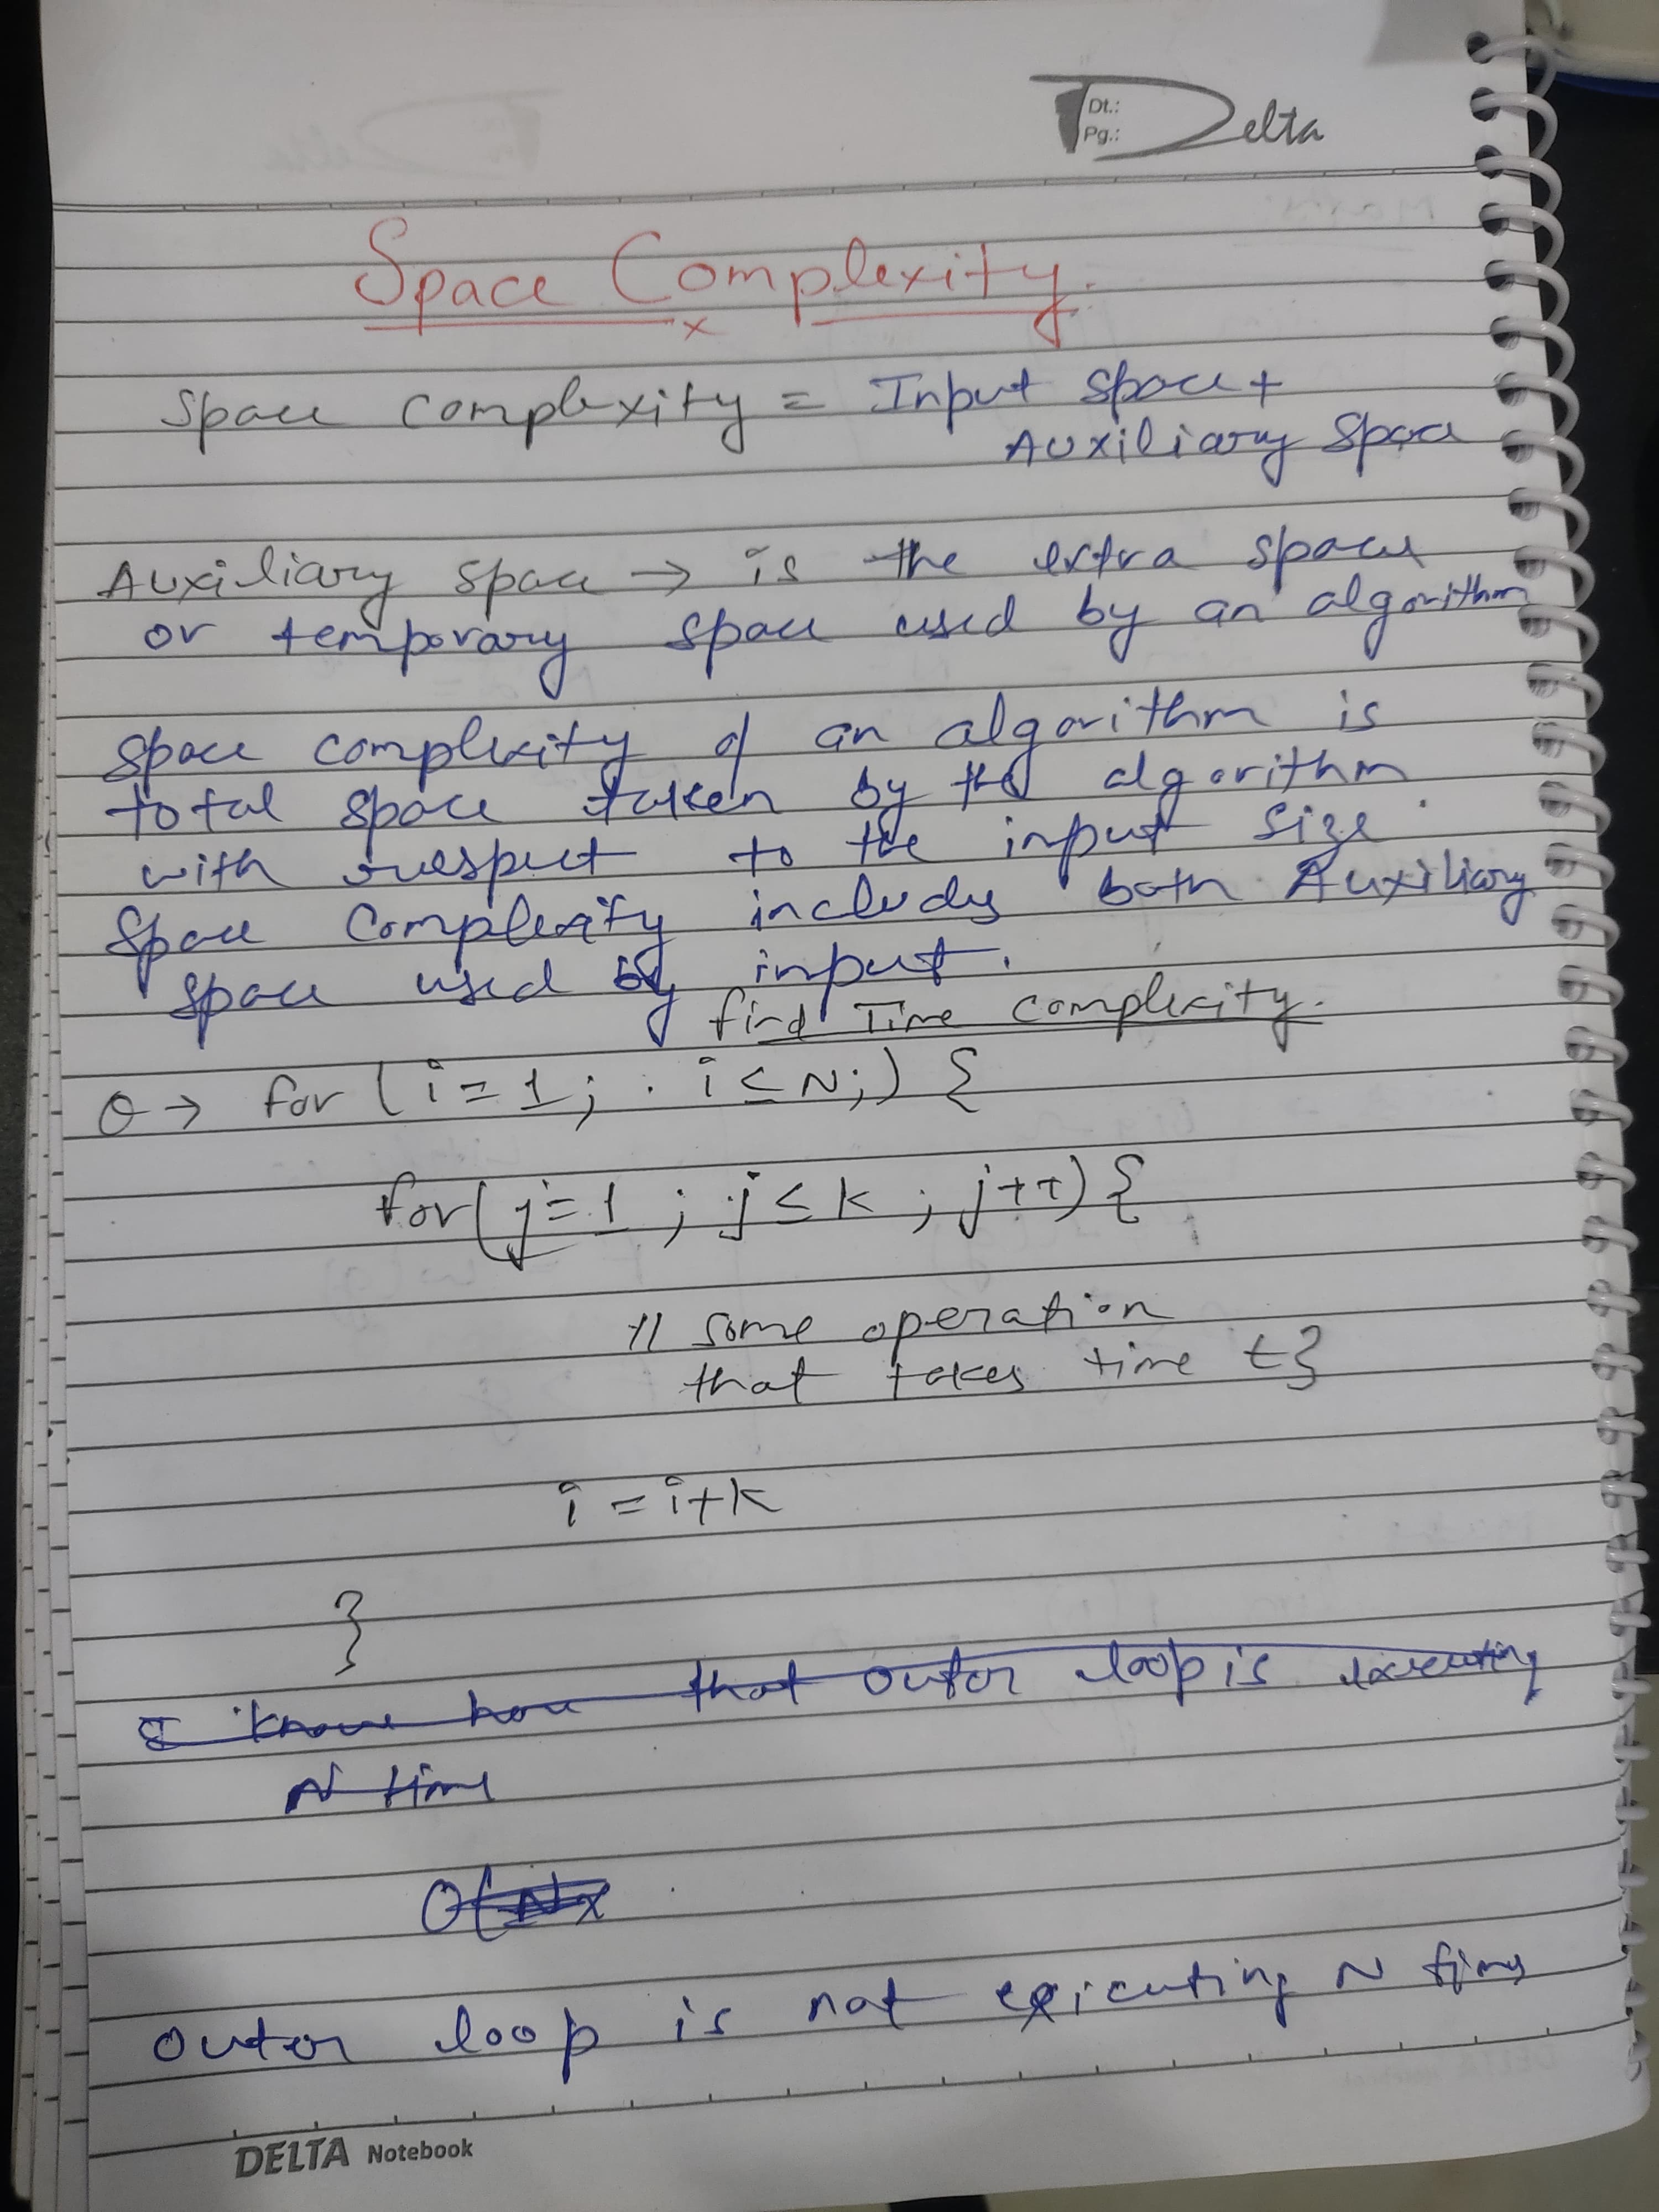 Dt.:
Pg.:
Delta
Space Complexity.
Space complexity = Input space +
Auxiliary Space
Auxiliary space → is the extra space
or temporary space used by an algorithm
Space complexity of an algorithm is
total space taken by the algorithm
with respect to the input size.
Space Complexity includes both Auxiliary
space used by input.
find Time complexity.
Q → for (i=1; i≤N;) {
for(j=1; j≤k; j++) {
// some operation
that takes time t}
i = i+k
}
I know how that outer loop is executing
N time
O(N x
outer loop is not exicuting N times
DELTA Notebook